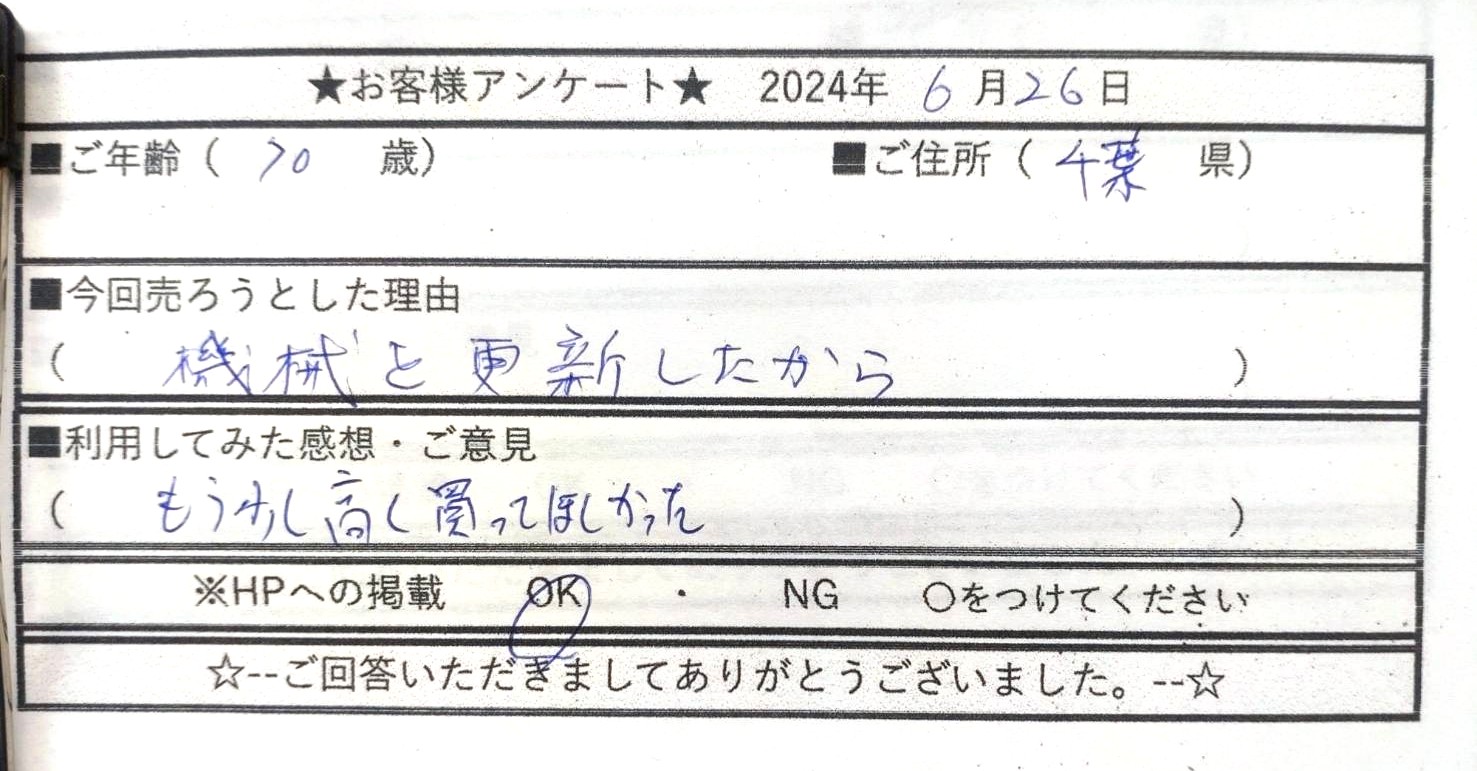 ★お客様アンケート★ 2024年 6月26日
■ご年齢( 70 歳) ■ご住所( 千葉 県)
■今回売ろうとした理由
( 機械を更新したから )
■利用してみた感想・ご意見
( もう少し高く買ってほしかった )
※HPへの掲載 OK ・ NG 〇をつけてください
☆--ご回答いただきましてありがとうございました。--☆